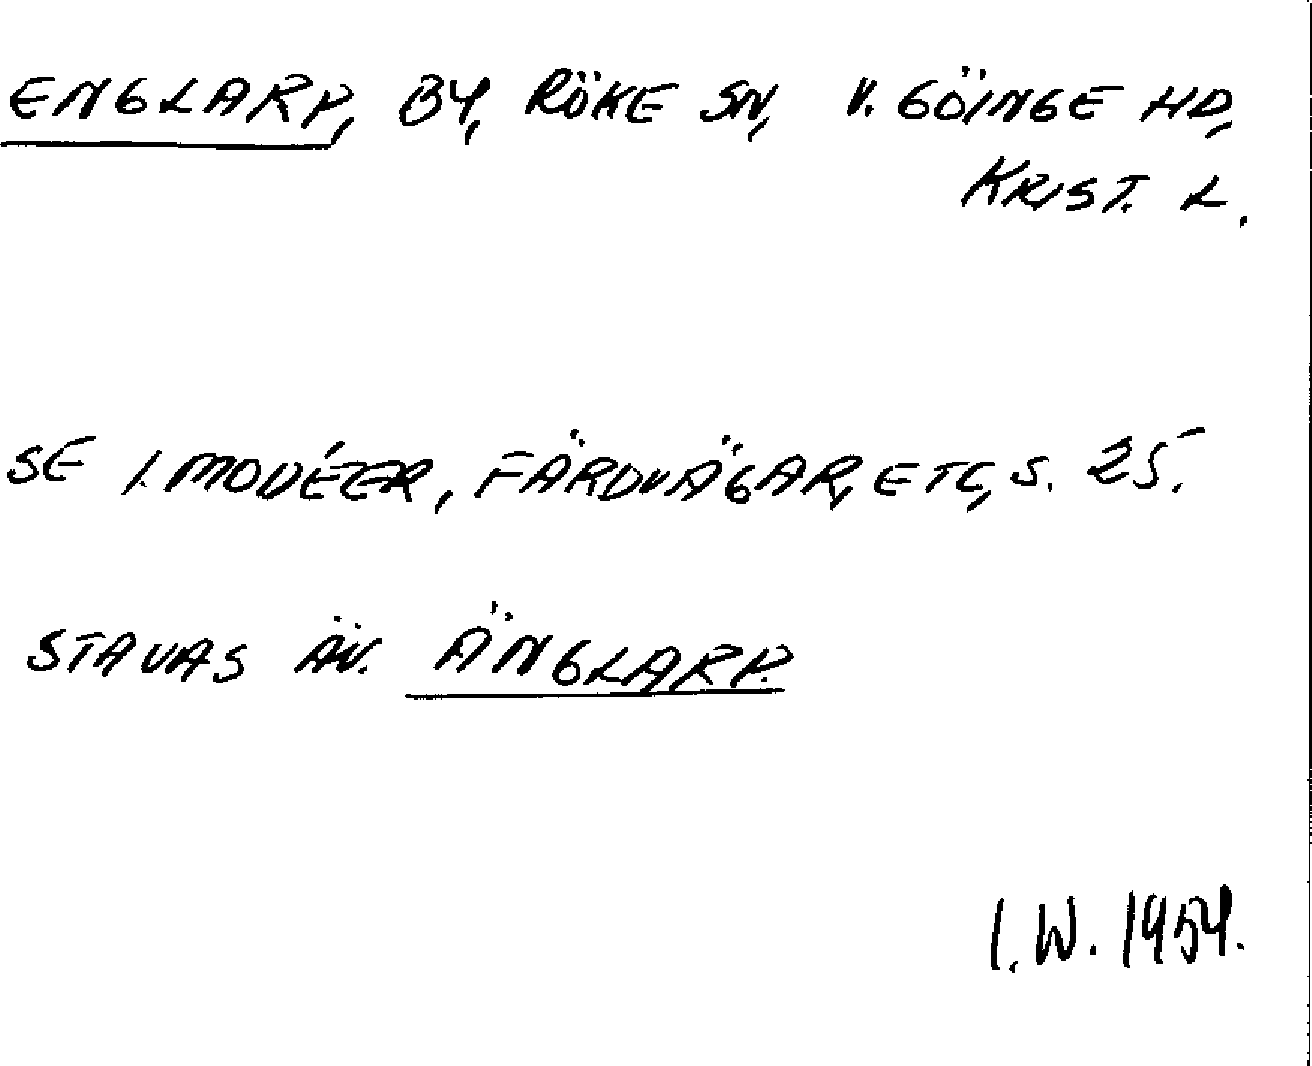 ENGLARP, BY, RÖKE SN, V. GÖINGE HD,
KRIST. L.
SE I. MODÉER, FÄRDVÄGAR, ETC, S. 25.
STAVAS ÄV. ÄNGLARP.
I. W. 1954.